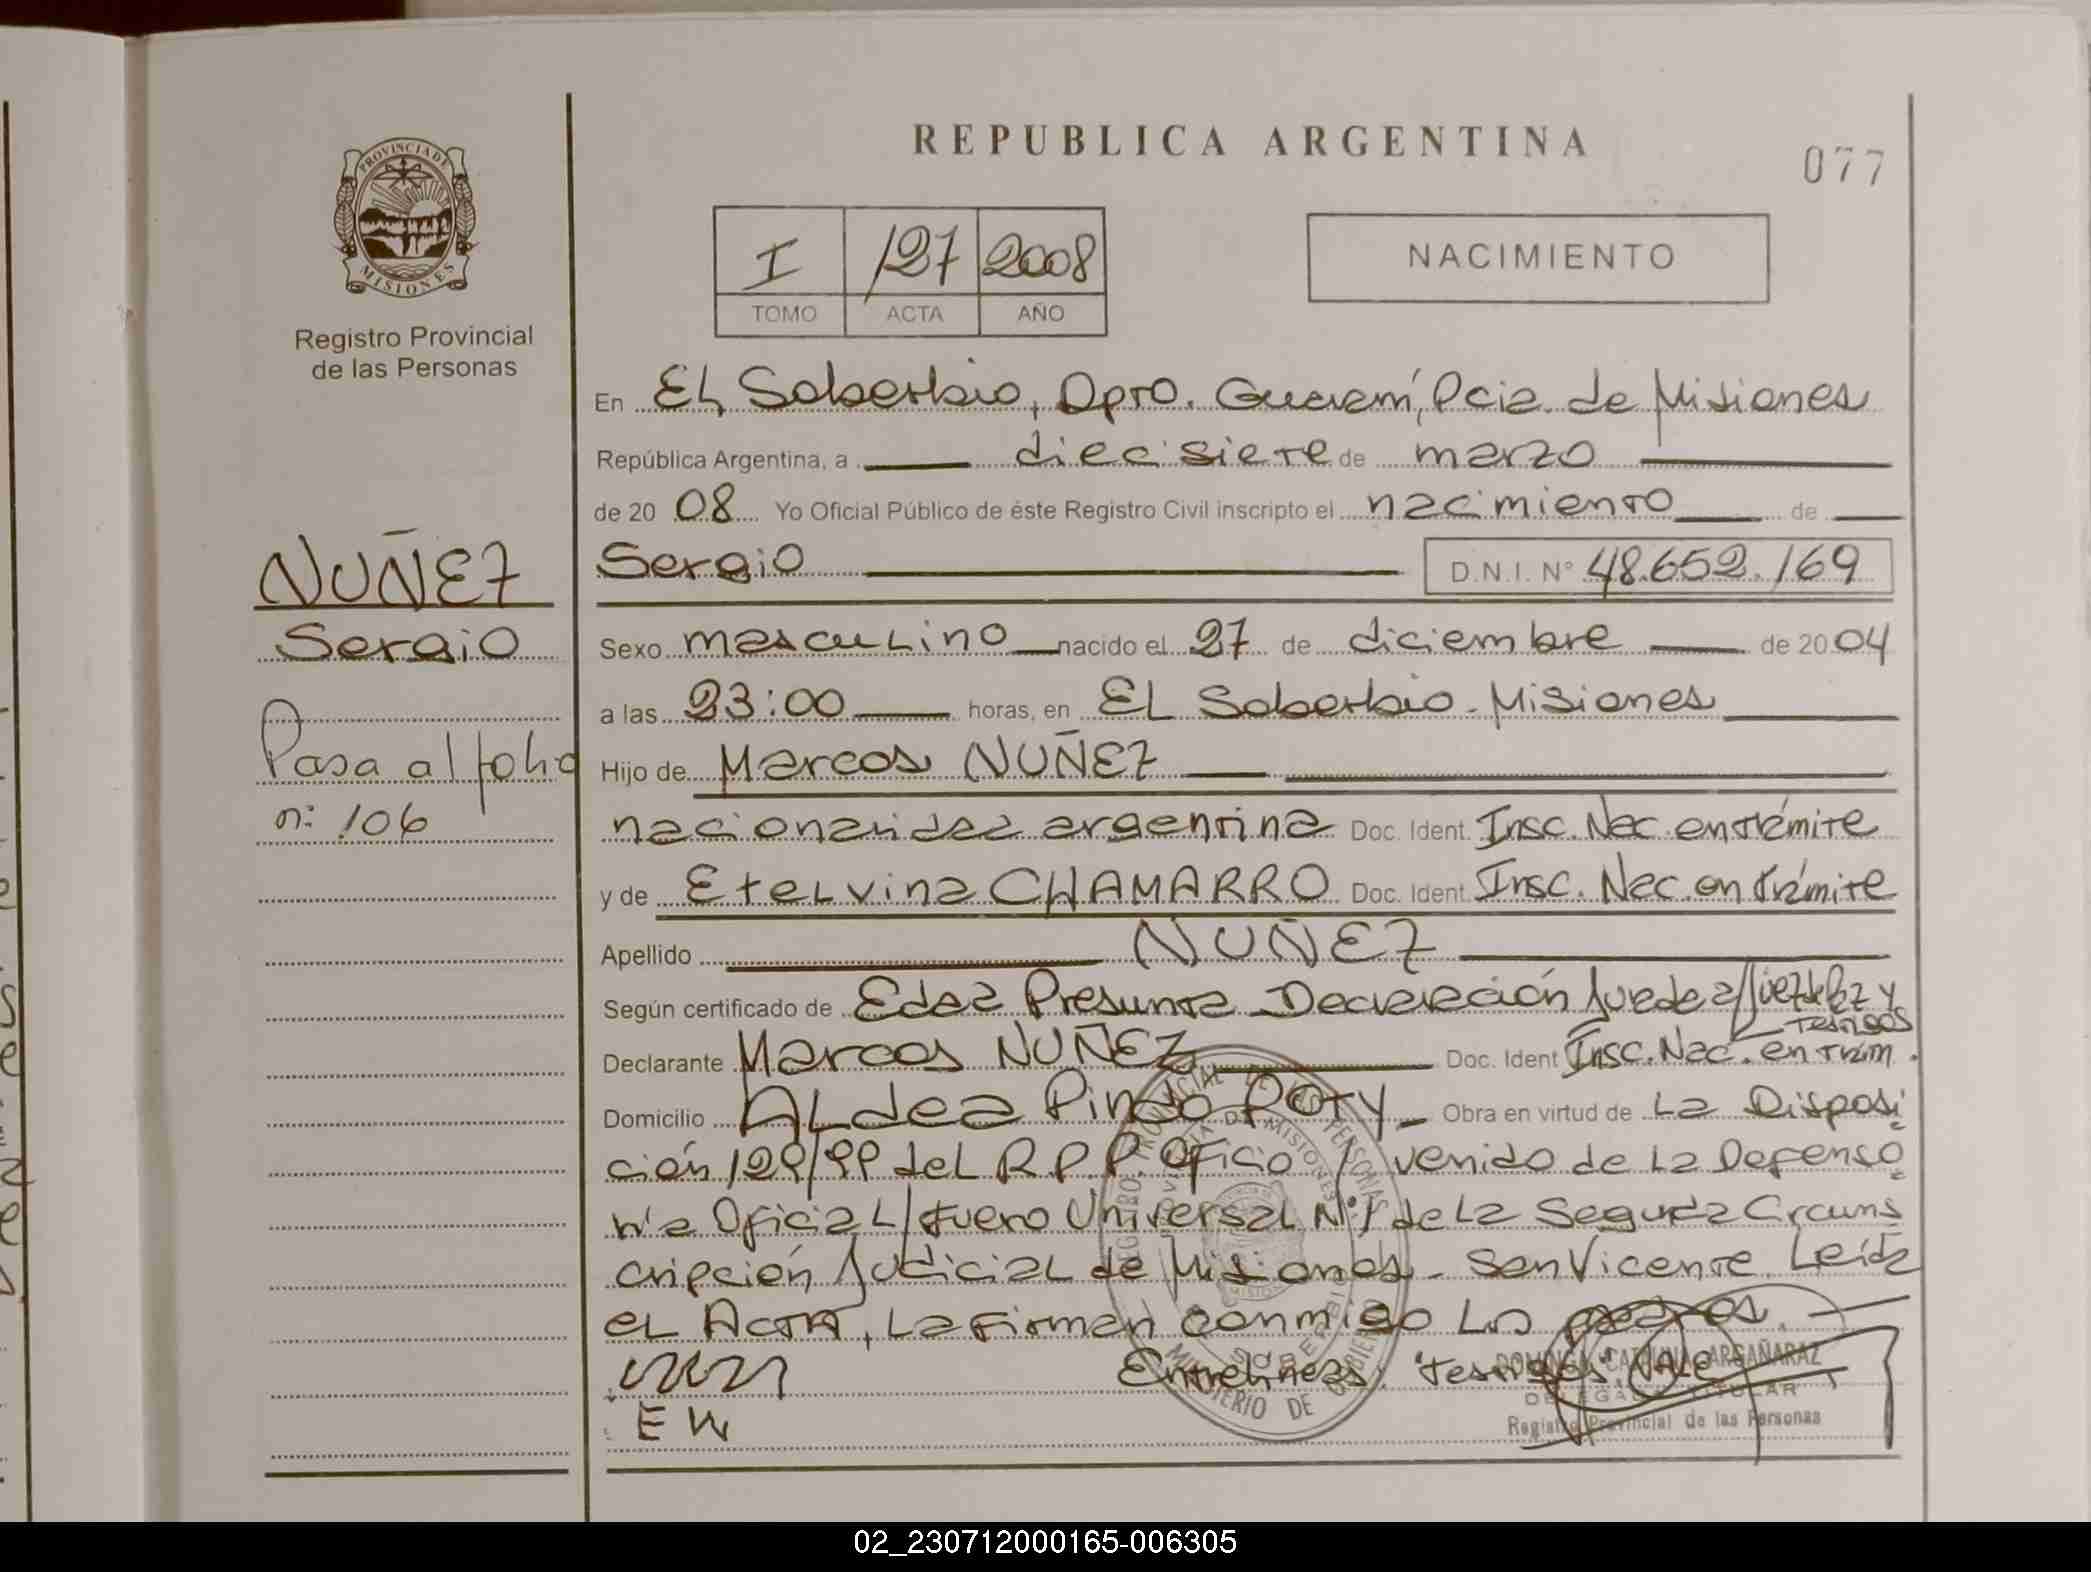 REPUBLICA ARGENTINA
077
PROVINCIA DE MISIONES
Registro Provincial
de las Personas
I 127 2008
TOMO ACTA AÑO
NACIMIENTO
En El Soberbio, Dpto. Guaraní, Pcia. de Misiones
República Argentina, a diecisiete de marzo
de 2008 Yo Oficial Público de éste Registro Civil inscripto el nacimiento de
Sergio D.N.I. N° 48.652.169
NUÑEZ
Sergio
Pasa al folio
n: 106
Sexo masculino nacido el 27 de diciembre de 2004
a las 23:00 horas, en El Soberbio - Misiones
Hijo de Marcos NUÑEZ
nacionalidad argentina Doc. Ident. Insc. Nac. en trámite
y de Etelvina CHAMARRO Doc. Ident. Insc. Nac. en trámite
Apellido NUÑEZ
Según certificado de Edad Presunta Declaración Jurada Juez de Paz y
testigos
Declarante Marcos NUÑEZ Doc. Ident Insc. Nac. en trám.
Domicilio Aldea Pindo Poty Obra en virtud de La Disposi
ción 129/99 del R.P.P. Oficio venido de La Defenso
ría Oficial fuero Universal N°1 de La Segunda Circuns
cripción Judicial de Misiones - San Vicente. Leída
el Acta, La firman conmigo Los padres.
Entrelineas: "testigos" VALE
E W
DOMINGA CATALINA ARGAÑARAZ
DELEGADA TITULAR
Registro Provincial de las Personas
REGISTRO PROVINCIAL DE LAS PERSONAS
PROVINCIA DE MISIONES
SOBERBIO
MINISTERIO DE GOBIERNO
02_230712000165-006305